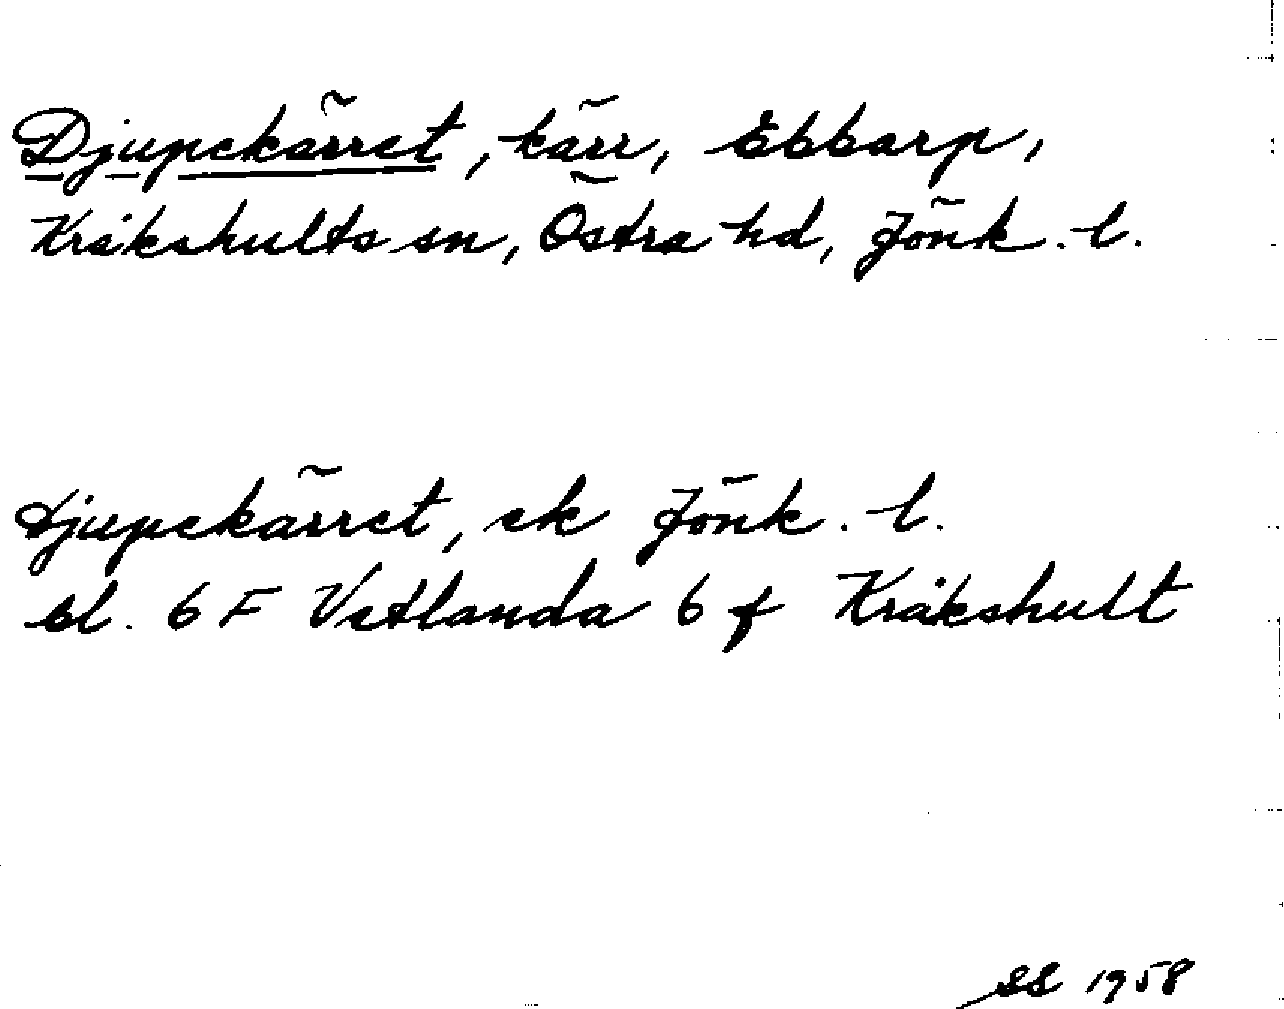 Djupekärret, kärr, Ebbarp,
Kråkshults sn, Östra hd, Jönk. l.
Djupekärret, ek Jönk. l.
bl. 6 F Vetlanda 6 f Kråkshult
SS 1958